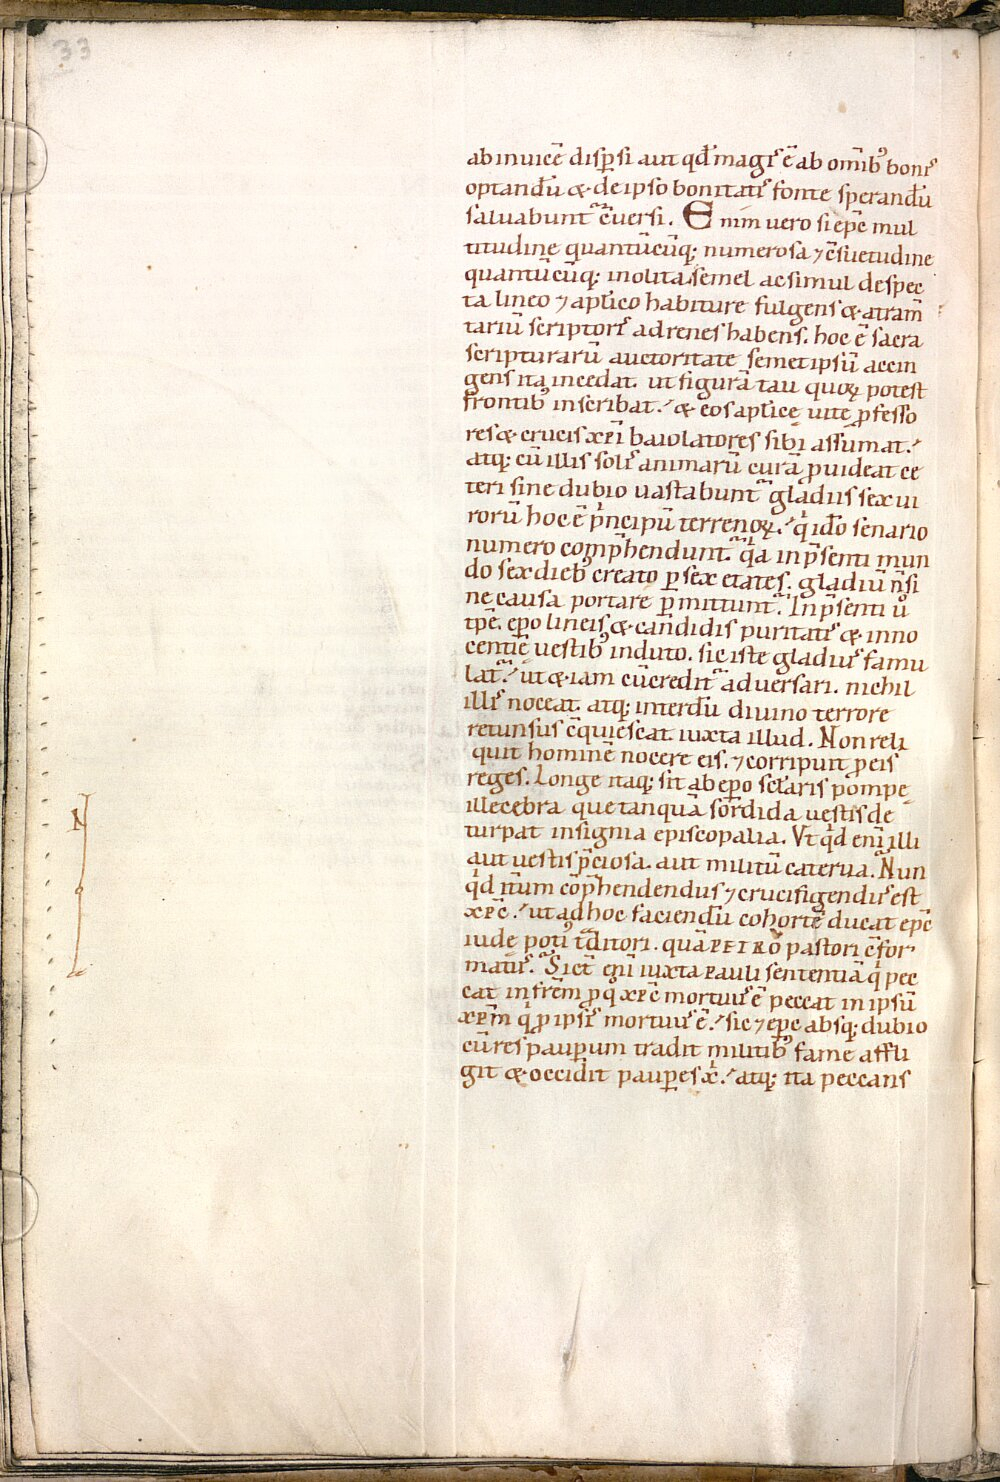 33
ab inuicē disp̱si aut qd̄ magıˢ ē ab om̄ib᷒ bonıˢ
optandū & de ipso bonitatıˢ fonte sperandū
saluabunt᷑ c̄uersi. Enim uero si ep̄c mul
titudine quantūcūq; numerosa ⁊ c̄suetudine
quantūcūq; inolita. semel ac simul despec
ta lineo ⁊ ap̄lico habitu refulgens & atram̄
tariū scriptorıˢ ad renes habens. hoc ē sacra
scripturarū auctoritate semetipsū accin
gens ita incedat. ut figurā tau quoꝝ potest
frontib᷒ inscribat. & eos aplicę uitę ꝓfesso
res & crucis xp̄i baiolatores sibi assumat.
atq; cū illis solıˢ animarū curā ꝓuideat ce
teri sine dubio uastabunt᷑ gladiis sex ui
rorū hoc ē pͥncipū terrenoꝝ. qͥ ideo senario
numero comp̄hendunt᷑. qͥa in p̄senti mun
do sex dieb᷒ creato ꝑ sex etates. gladiū n̄ si
ne causa portare ꝑmittunt᷑. In p̄senti ū
tp̄e. ep̄o lineis & candidis puritatıˢ & inno
centię uestib᷒ induto. sic iste gladiuˢ famu
lat᷑. ut & iam cū credit᷑ aduersari. nichil
illıˢ noceat. atq; interdū diuino terrore
retunsus c̄quiescat iuxta illud. Non reli
quit hominē nocere eis. ⁊ corripuit ꝓ eis
reges. Longe itaq; sit ab ep̄o sclaris pompę
illecebra que tanquā sordida uestis de
turpat insignia episcopalia. Vt qͥd enī illi
aut uestis p̄ciosa. aut militū caterua. Nun
qͥd itıum cōp̄hendendus ⁊ crucifigenduˢ est
xp̄c. ut ad hoc faciendū cohortē ducat ep̄c
iudę poti᷒ tͣditori. quā PETRO pastori c̄for
matuˢ. Sic᷑ enī iuxta Pauli sententiā qͥ pec
cat in frēm ꝓ qͦ xp̄c mortuuˢ ē peccat in ipsū
xp̄m qͥ ꝓ ipsıˢ mortuuˢ ē. sic ⁊ ep̄c absq; dubio
cū res pauꝑum tradit militib᷒ fame affli
git & occidit pauꝑes x̄. atq; ita peccans
N